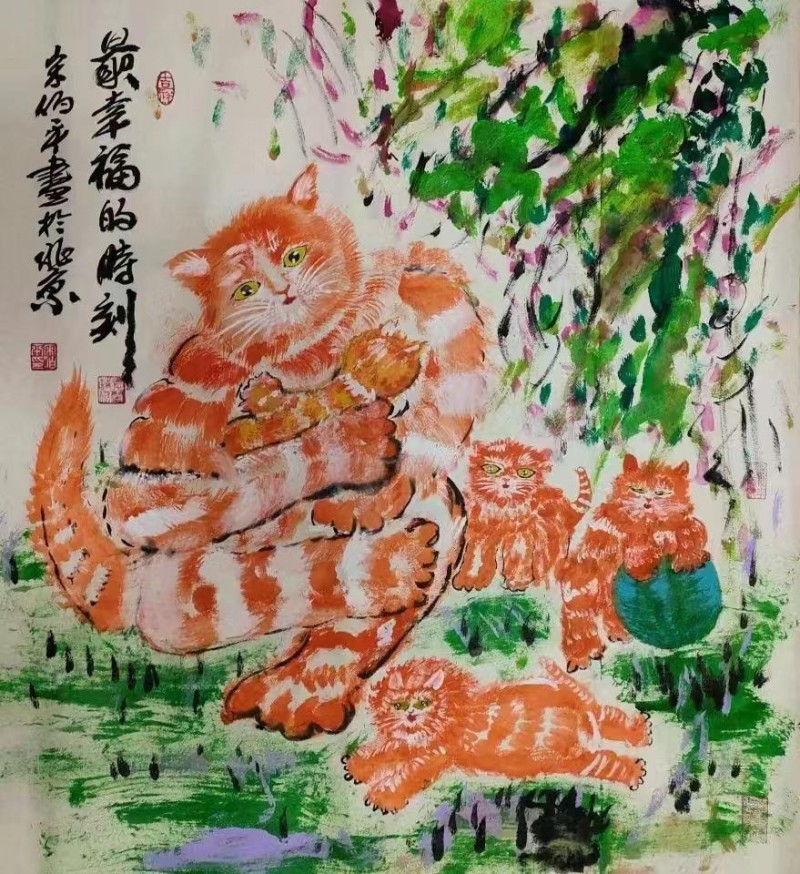 最幸福的時刻
宋伯平畫於北京
吉祥